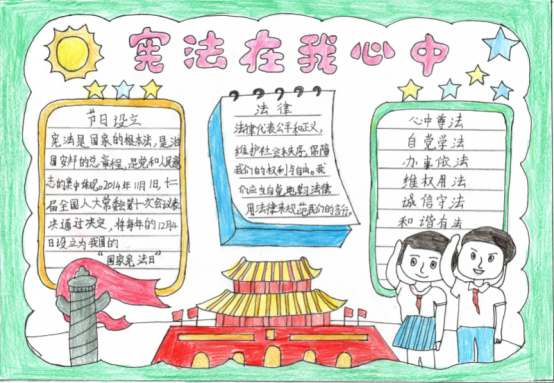 宪法在我心中
节日设立
宪法是国家的根本法,是治
国安邦的总章程,是党和人民意
志的集中体现。2014年11月1日,十二
届全国人大常委会第十一次会议表
决通过决定,将每年的12月4
日设立为我国的
“国家宪法日”
法律
法律代表公平和正义,
维护社会秩序,保障
我们的权利与自由。我
们应当自觉地遵守法律
用法律来规范我们的言行
心中尊法
自觉学法
办事依法
维权用法
诚信守法
和谐有法